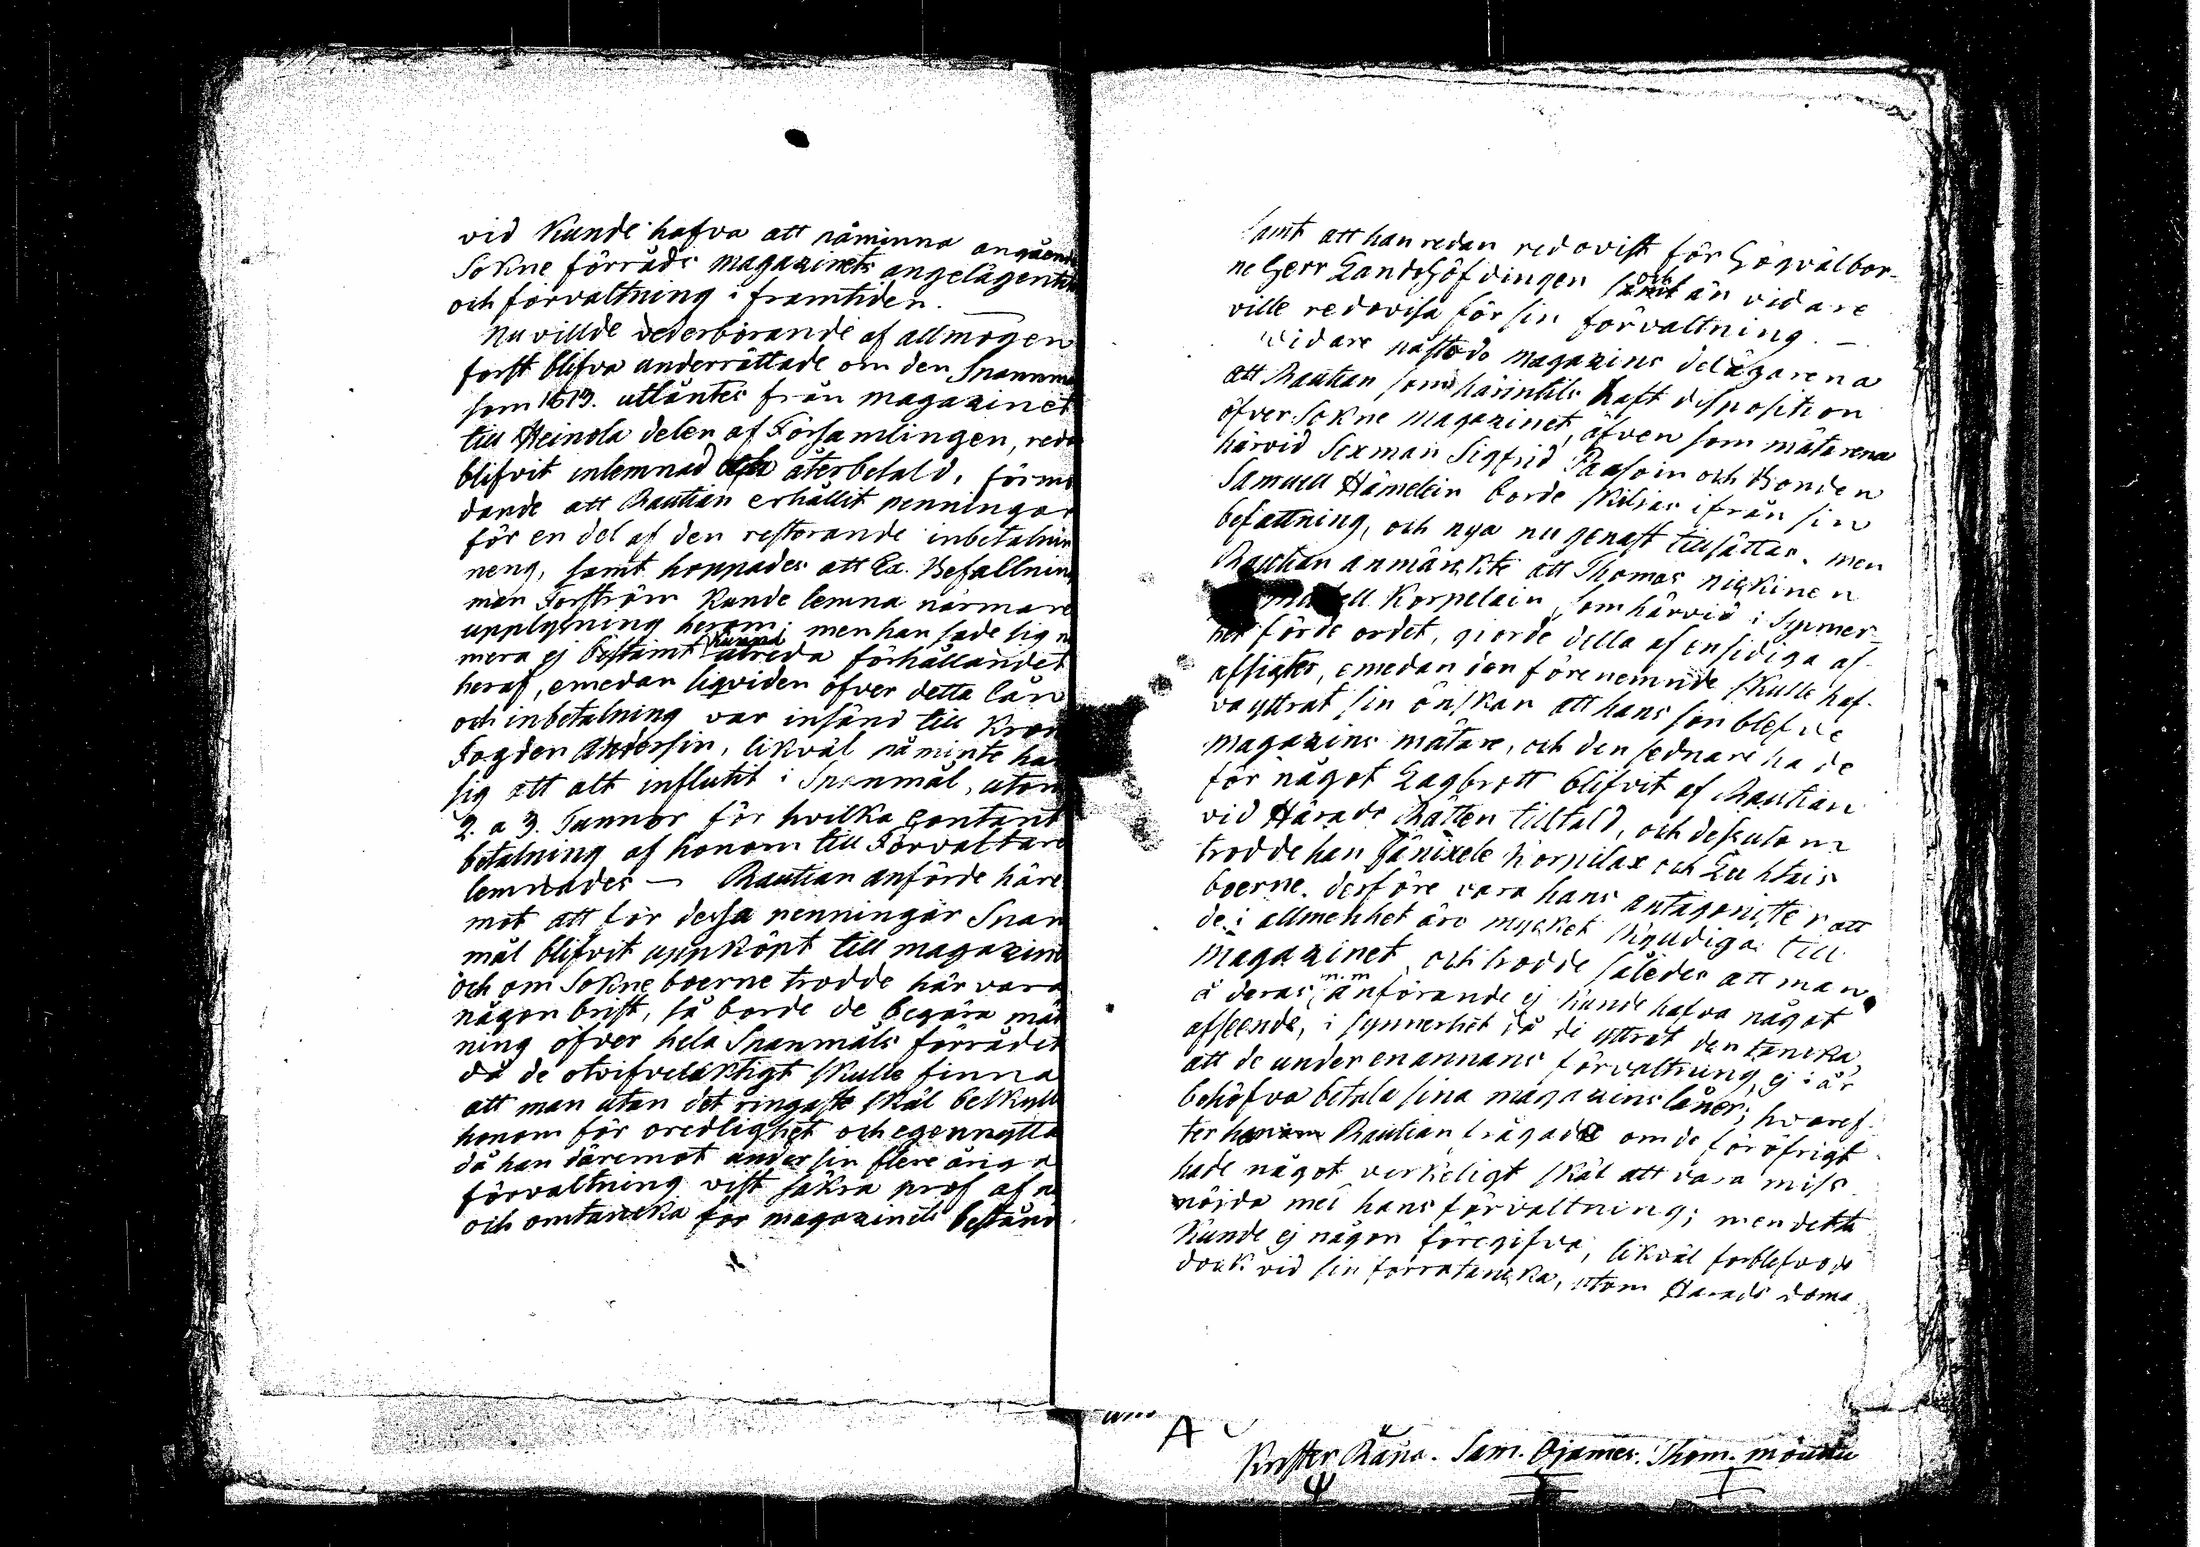 vid Kunde hafva att påminna angående
Sokne förråds magazinets angelägenhet
och förvaltning i framtiden.
Nu villde vederbörande af allmogen
forst blifva underrättade om den Spanmå
som 1613. utlåntes från magazinet
till Heinola delen af Församlingen, reda
blifvit inlemnad och återbetald, förme
dande att Rautian erhållit penningar
för en del af den restorande inbetalnin
neng, samt hoppades att Ex. Befallnin
man Forström Kunde lemna närmare
upplysning herom; men han sade sig n
mera ej bestämt Kunna utreda förhållandet
heraf, emedan liqviden öfver detta lån
och inbetalning var insänd till Kron
Fogden Andersin, likväl påminte ha
sig att alt influtit i Spanmål, utom
2. a 3. Tunnor för hvilka contant
betalning af honom till Förvaltare
lemnades — Rautian anförde häre
mot att för dessa penningar Span
mål blifvit uppköpt till magazine
och om Sokne boerne trodde här vara
någon brist, så borde de begära mät
ning öfver hela Spanmåls förrådet
då de otvifvelaktigt skulle finna
att man utan det ringaste skäl beskyll
honom för oredlighet och egennytta
då han däremot under sin flere åriga
förvaltning vist säkra prof af n
och omtancka för magazinets bestånd
samt att han redan redovist för Högvälbor-
ne Herr Landshöfdingen och än vidare
ville redovisa för sin förvaltning. —
Vidare påstodo magazins delägarena
att Rautian som härintils haft disposition
öfver Sokne magazinet, äfven som mätarena
härvid Sexman Sigfrid Paasoin och Bonden
Samuell Hämeläin borde skiljas ifrån sin
befattning, och nya nu genast tillsättas. men
Rautian anmärckte att Thomas Niskinen
muell Korpelain, som härvid i Synner-
het förde ordet, giorde detta af ensidiga af-
afsigter, emedan den förenemnde skulle haf-
va yttrat sin önskan att hans son blefve
magazins mätare, och den sednare hade
för något Lagbrott blifvit af Rautian
vid Härads Rätten tilltald, och dessutom
trodde han Jänixele Korpilax och Luhtais
boerne. desföre vara hans antagonister att
de i allmenhet äro mycket skyldiga till
magazinet, och trodde således att man
å deras m.m anförande ej kunde hafva något
afseende, i synnerhet då de yttrat den tancka,
att de under en annans förvaltning, ej i år
behöfva betala sina magazins låner; hvaref-
ter Rautian frågade om de föröfrigt
hade något verkeligt skäl att vara miss
nöjda med hans förvaltning; men detta
Kunde ej någon föregifva, likväl forblefvo de
dock vid sin förra tancka, utom Harads doma
A
Krister Räna. Sam. Ojames. Thom. Moukku